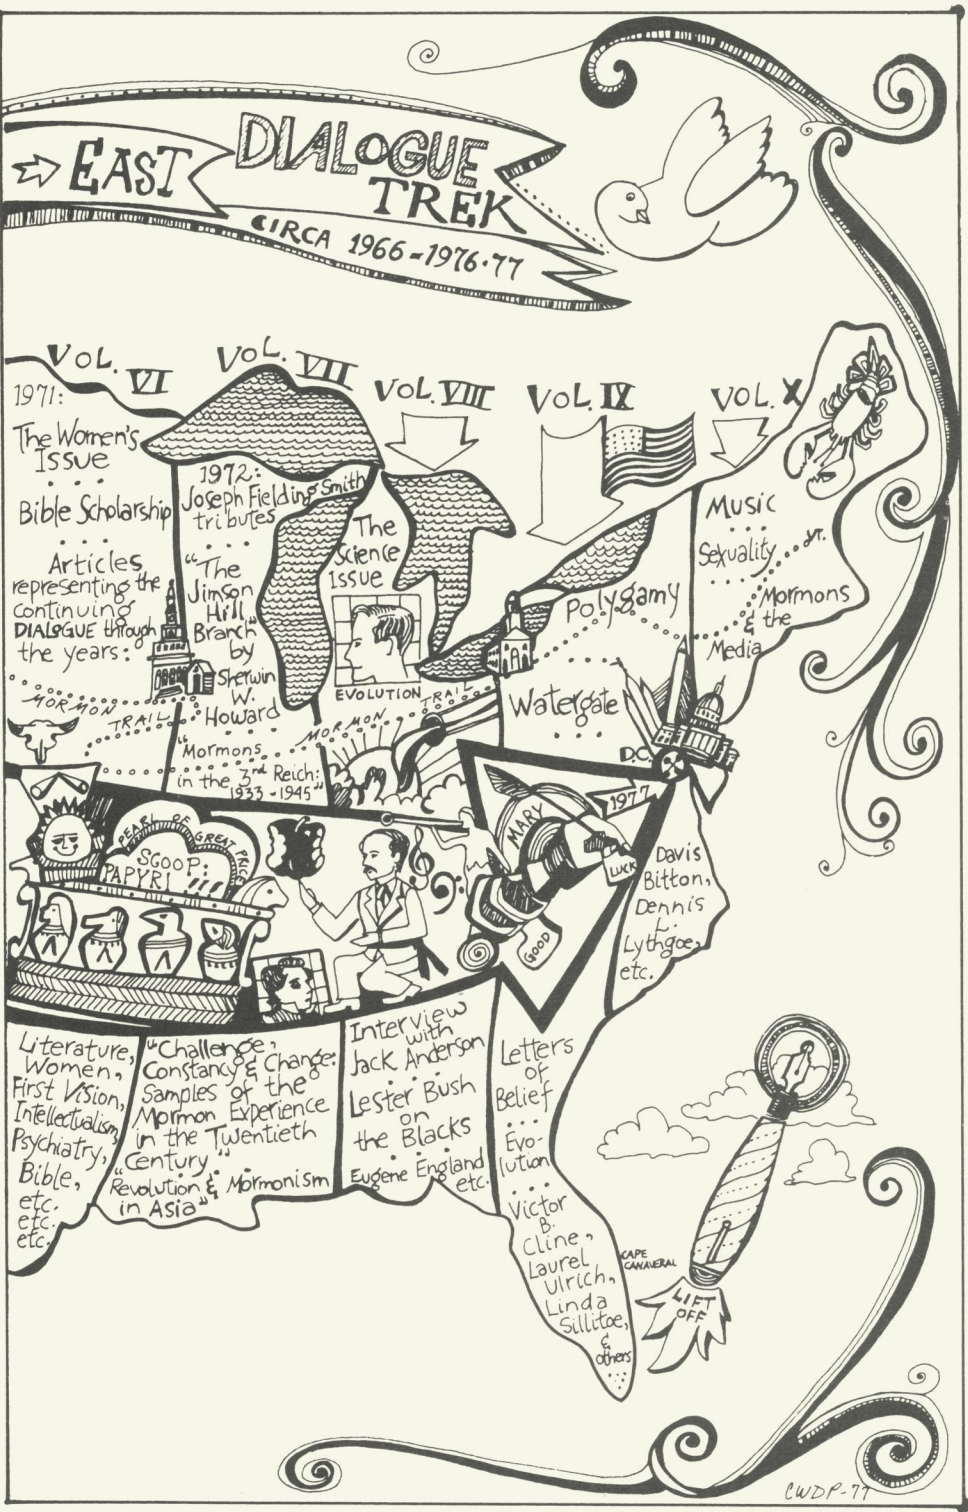 EAST
DIALOGUE
TREK
CIRCA 1966-1976-77
VOL. VI
VOL. VII
VOL. VIII
VOL. IX
VOL. X
1971:
The Women's
Issue
Bible Scholarship
Articles
representing the
continuing
DIALOGUE through
the years:
MORMON
TRAIL
1972:
Joseph Fielding Smith
tributes
"The
Jimson
Hill
Branch"
by
Sherwin
W.
Howard
"Mormons
in the 3rd Reich:
1933-1945"
The
Science
Issue
EVOLUTION
MORMON TRAIL
Polygamy
Watergate
D.C.
Music
Sexuality
VT.
Mormons
& the
Media
PEARL OF GREAT PRICE
SCOOP:
PAPYRI !!!
MARY
1977
LUCK
GOOD
Davis
Bitton,
Dennis
L.
Lythgoe,
etc.
Literature,
Women,
First Vision,
Intellectualism,
Psychiatry,
Bible,
etc.
etc.
etc.
"Challenge,
Constancy & Change:
Samples of the
Mormon Experience
in the Twentieth
Century"
"Revolution & Mormonism
in Asia"
Interview
with
Jack Anderson
Lester Bush
on
the Blacks
Eugene England
etc.
Letters
of
Belief
Evo-
lution
Victor
B.
Cline,
Laurel
Ulrich,
Linda
Sillitoe,
&
others
CAPE
CANAVERAL
LIFT
OFF
CWDP-77